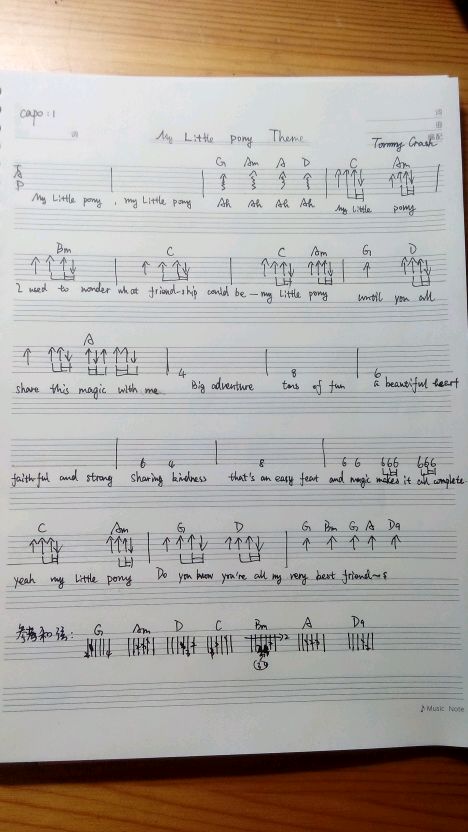 capo:1
词
词
曲
编配
My Little pony Theme
Tommy Crash
G Am A D C Am
T
A
P
My Little pony, my Little pony Ah Ah Ah Ah my little pony
Bm C C Am G D
I used to wonder what friend-ship could be — my little pony until you all
A
4 8 6
share this magic with me Big adventure tons of fun a beautiful heart
6 4 8 6 6 666 666
faithful and strong sharing kindness that's an easy feat and magic makes it all complete
C Am G D G Bm G A D9
yeah my little pony Do you know you're all my very best friend~s
参考和弦: G Am D C Bm A D9
2
3 4
♪ Music Note